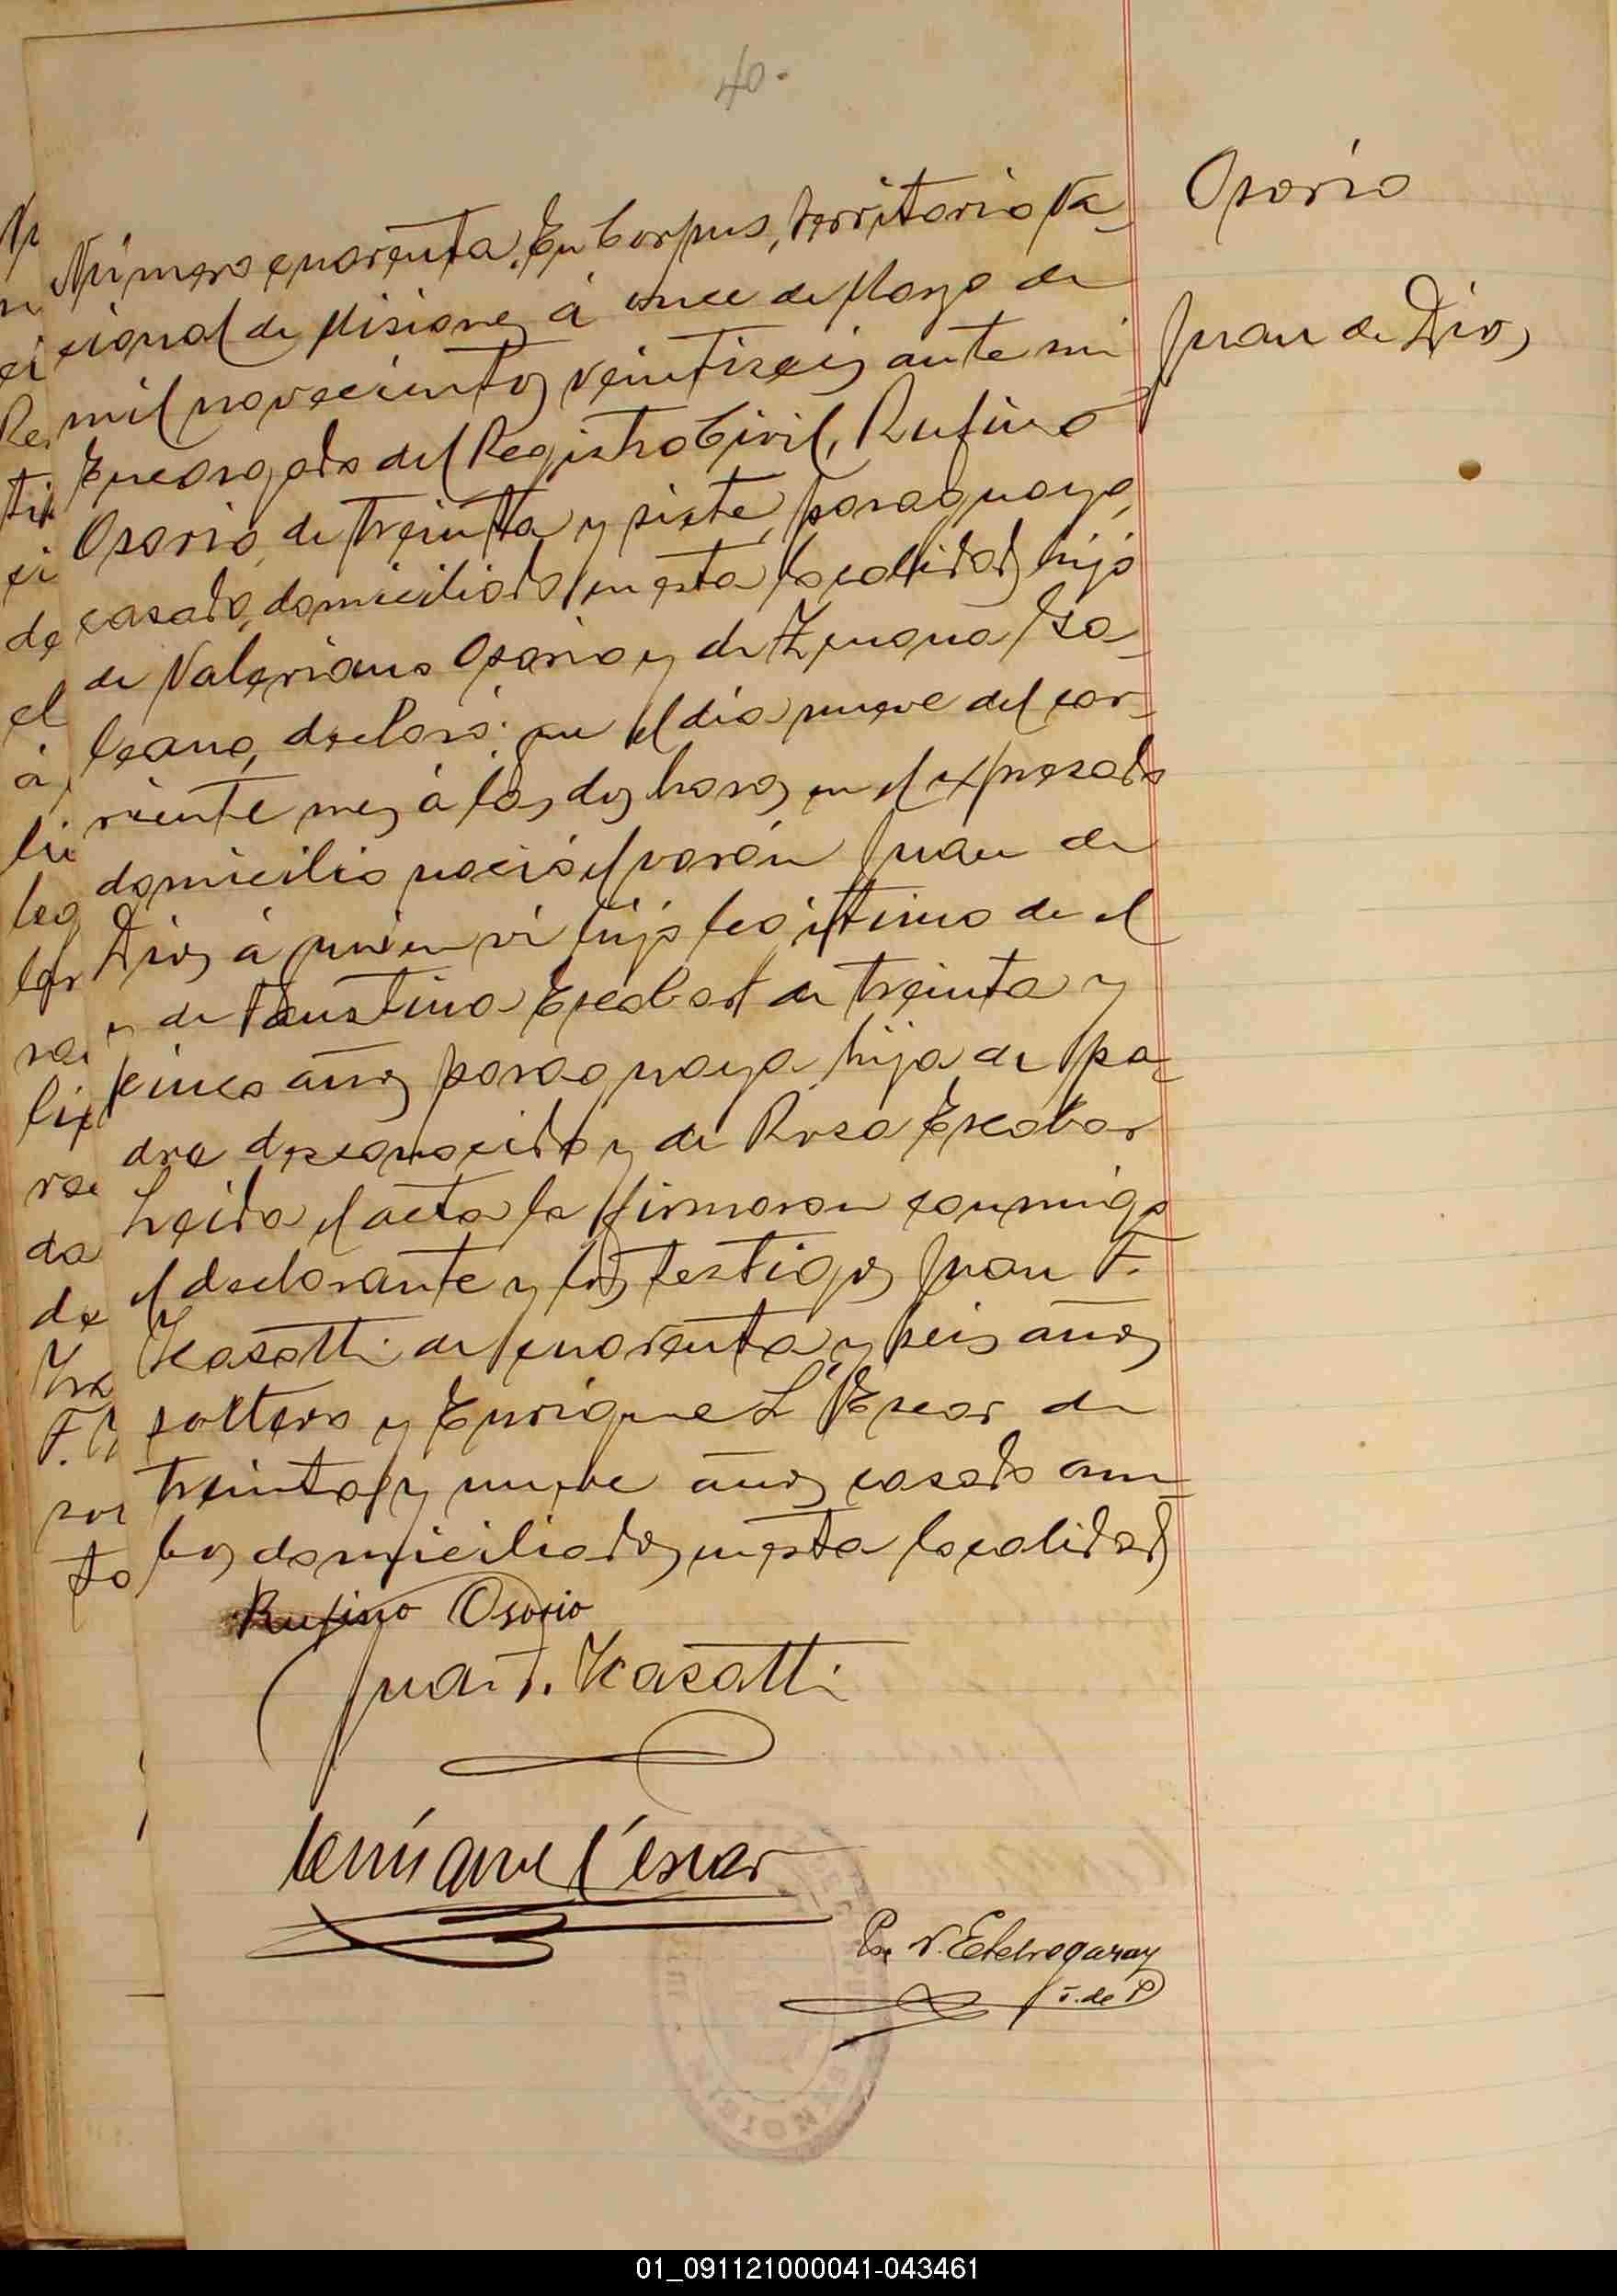 40.
Osorio
Juan de Dios
Número cuarenta. En Corpus, territorio Na-
cional de Misiones á once de Marzo de
mil novecientos veintiseis ante mi
Encargado del Registro Civil, Rufino
Osorio, de treinta y siete, paraguayo,
casado, domiciliado en esta localidad hijo
de Valeriano Osorio y de Zenona
declaró: que el día nueve del cor-
riente mes á las dos horas en el expresado
domicilio nació el varón Juan de
Dios á quien ví hijo legittimo de el
y de Faustina Escobar de treinta y
cinco años paraguaya hija de pa-
dre desconocido y de Rosa Escobar
Leida el acta la firmaron conmigo
el declarante y los testigos Juan F.
Kasatti de cuarenta y seis años
soltero y Enrique L'Escar de
treinta y nueve años casado am-
bos domiciliados en esta localidad
Rufino Osorio
Juan F. Kasatti
Enrique L'éscar
N. Etchegaray
J. de P
MISIONES
01_091121000041-043461